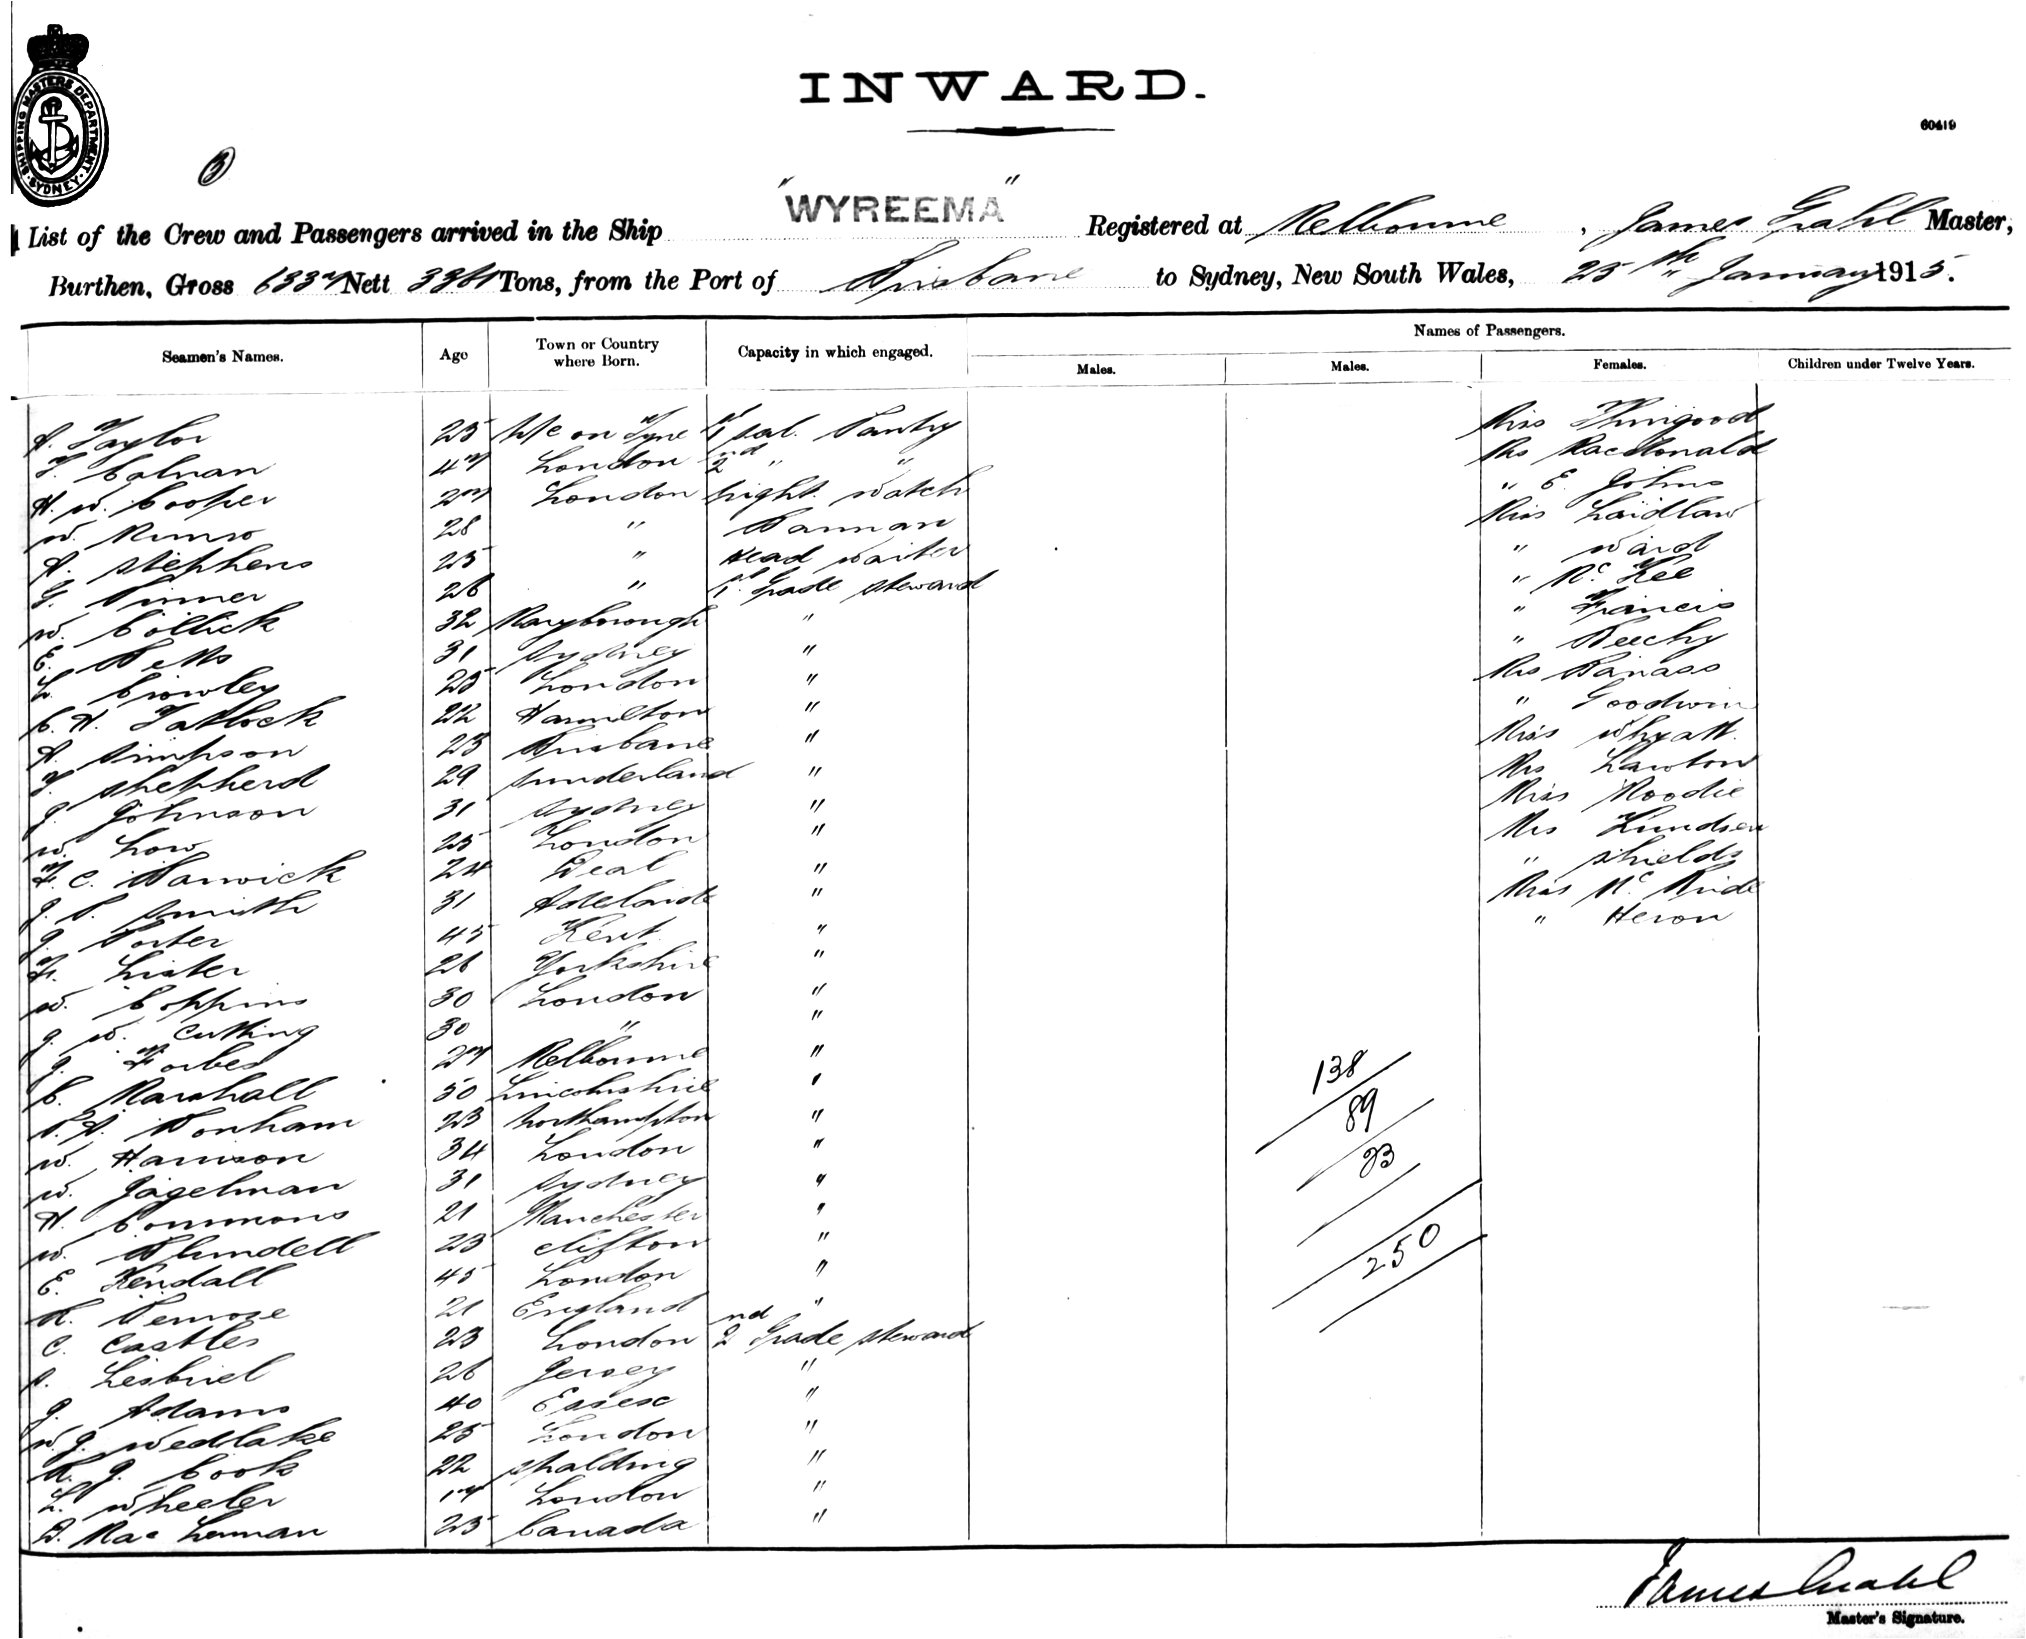 SHIPPING MASTERS DEPARTMENT. SYDNEY.
INWARD.
60419
3
"WYREEMA"
List of the Crew and Passengers arrived in the Ship Registered at Melbourne, James Grahl Master,
Burthen, Gross 6337 Nett 3361 Tons, from the Port of Brisbane to Sydney, New South Wales, 25th January 1915.
Names of Passengers.
Seamen's Names. Age Town or Country where Born. Capacity in which engaged. Males. Males. Females. Children under Twelve Years.
A. Taylor 25 N/c on Tyne 1st Sal. Pantry Miss Thurgood
T. Colman 47 London 2nd " " Mrs MacDonald
H. W. Cooper 27 London Night Watch " E. Johns
W. Munro 28 " Barman Miss Laidlaw
A. Stephens 25 " Head Waiter " Ward
G. Pinner 26 " 1st Grade Steward " McKee
W. Collick 32 Maryborough " " Francis
E. Betts 31 Sydney " " Beechy
L. Crowley 25 London " Mrs
C. H. Tatlock 22 Hamilton " " Goodwin
A. Simpson 23 Brisbane " Miss Whyatt.
T. Shepherd 29 Sunderland " Mrs Lawton
J. Johnson 31 Sydney " Miss Moodie
W. Low 25 London " Mrs
F. C. Barwick 24 Deal " " Shields
J. P. Smith 31 Adelaide " Miss
J. Porter 45 Kent " " Heron
F. Lister 26 Yorkshire "
W. Coppins 30 London "
J. W. Cutting 30 " "
J. Forbes 27 Melbourne "
C. Marshall 50 Lincolnshire "
P. A. Bonham 23 Northampton "
W. Harrison 34 London "
W. Jagelman 31 Sydney "
H. Commons 21 Manchester "
W. Blundell 23 Clifton "
E. Kendall 45 London "
R. Penrose 21 England "
C. Castles 23 London 2nd Grade Steward
S. Lesbirel 26 Jersey "
J. Adams 40 Essex "
W. J. Wedlake 25 London "
R. J. Cook 22 Spalding "
L. Wheeler 17 London "
D. Mac Lennan 25 Canada "
138
89
23
250
James Grahl
Master's Signature.